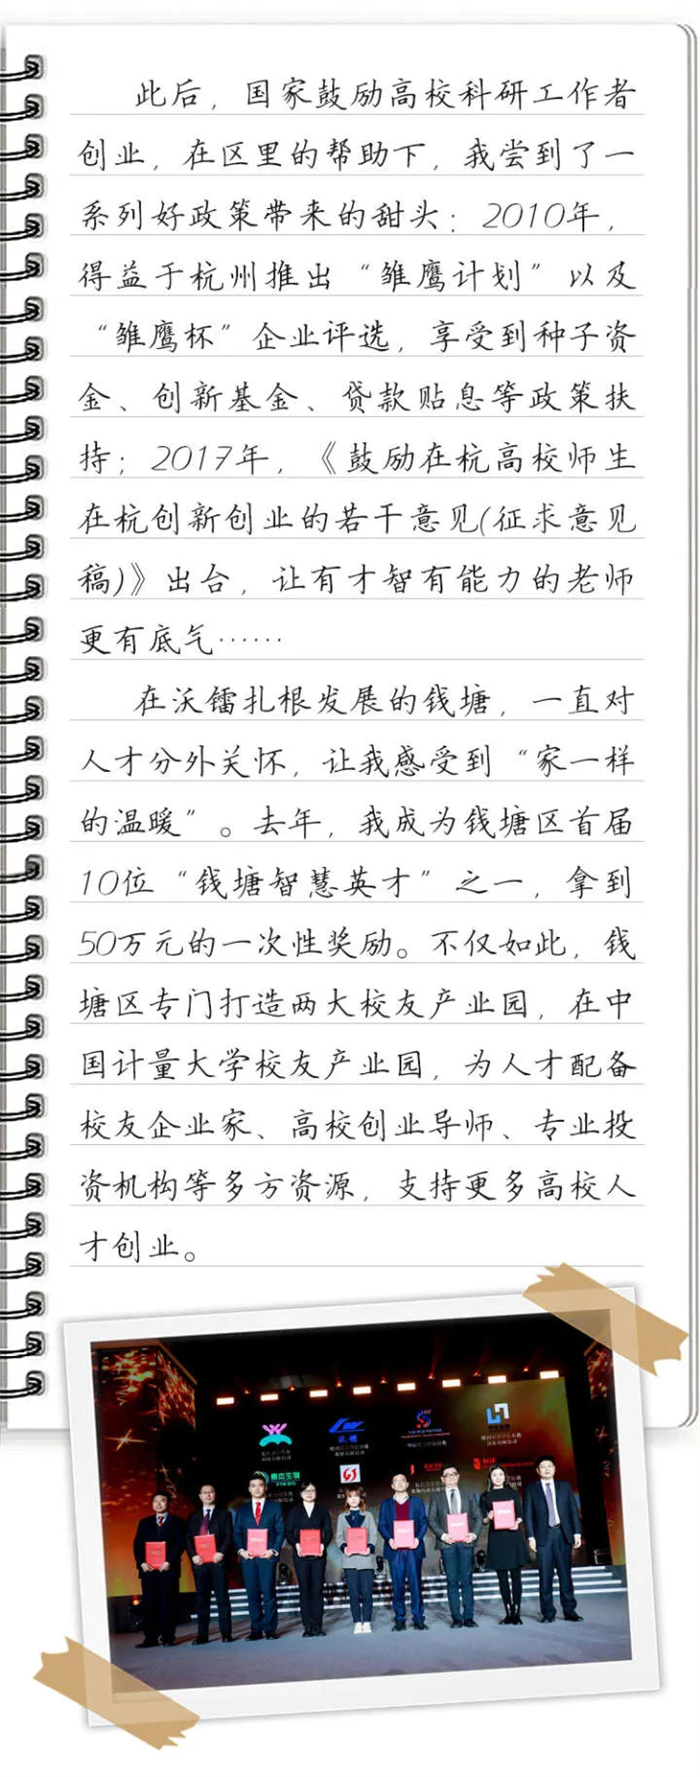 此后，国家鼓励高校科研工作者
创业，在区里的帮助下，我尝到了一
系列好政策带来的甜头：2010年，
得益于杭州推出“雏鹰计划”以及
“雏鹰杯”企业评选，享受到种子资
金、创新基金、贷款贴息等政策扶
持；2017年，《鼓励在杭高校师生
在杭创新创业的若干意见(征求意见
稿)》出台，让有才智有能力的老师
更有底气……
在沃镭扎根发展的钱塘，一直对
人才分外关怀，让我感受到“家一样
的温暖”。去年，我成为钱塘区首届
10位“钱塘智慧英才”之一，拿到
50万元的一次性奖励。不仅如此，钱
塘区专门打造两大校友产业园，在中
国计量大学校友产业园，为人才配备
校友企业家、高校创业导师、专业投
资机构等多方资源，支持更多高校人
才创业。